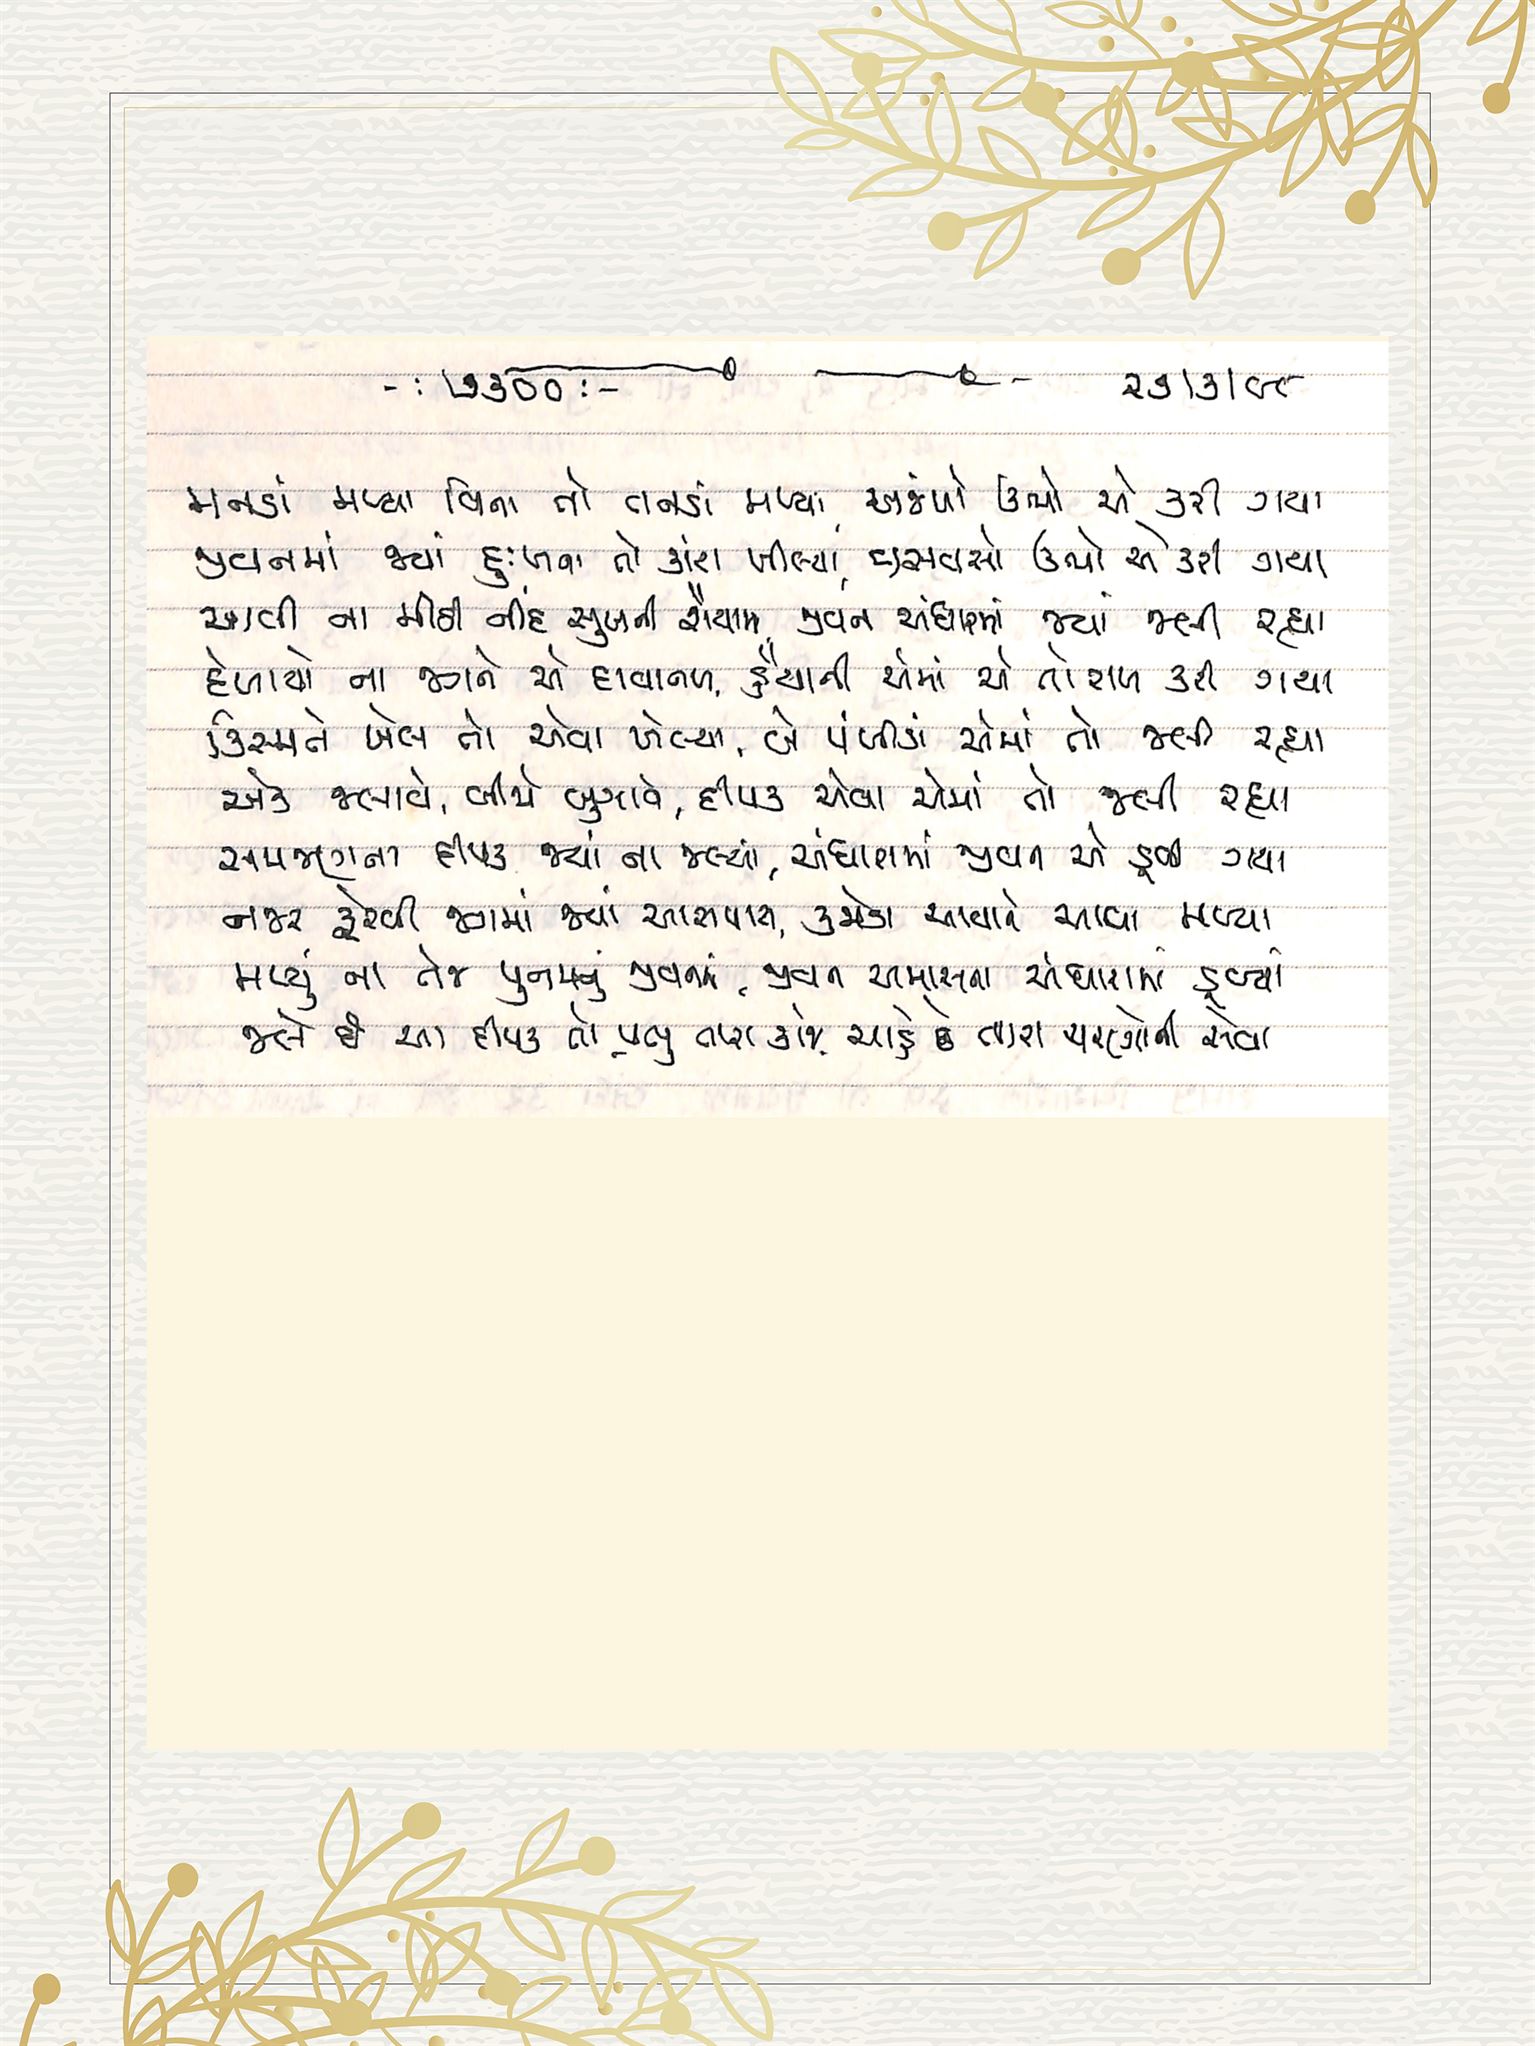 -: ૭૩૦૦ :- ૨૭/૩/૯૮
મનડાં મળ્યા વિના તો તનડાં મળ્યા, અજંપો ઉભો એ કરી ગયા
જીવનમાં જ્યાં દુઃખના તો કાંટા ખીલ્યાં, વસવસો ઉભો એ કરી ગયા
આવી ના મીઠી નીંદ સુખની શૈયામાં, જીવન અંધારામાં જ્યાં જલી રહ્યા
દેખાયો ના જગને એ દાવાનળ, હૈયાની એમાં એ તો રાખ કરી ગયા
કિસ્મતે ખેલ તો એવા ખેલ્યા, બે પંખીડાં એમાં તો જલી રહ્યા
એક જલાવે, બીજો બુઝાવે, દીપક એવા એમાં તો જલી રહ્યા
સમજણના દીપક જ્યાં ના જલ્યાં, અંધારામાં જીવન એ ડૂબી ગયા
નજર ફેરવી જગમાં જ્યાં આસપાસ, કજોડા આવાને આવા મળ્યા
મળ્યું ના તેજ પુનમનું જીવનમાં, જીવન અમાસના અંધારામાં ડૂબ્યાં
જલે છે આ દીપક તો પ્રભુ તારા કાજે, ચાહે છે તારા ચરણોની સેવા